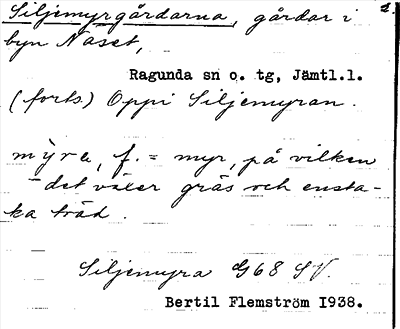 Siljemyrgårdarna, gårdar i 2.
byn Näset,
Ragunda sn o. tg, Jämtl.l.
(forts.) Oppi Siljemyran.
mỳra, f. = myr, på vilken
det växer gräs och ensta-
ka träd.
Siljemyra G68 SV.
Bertil Flemström I938.